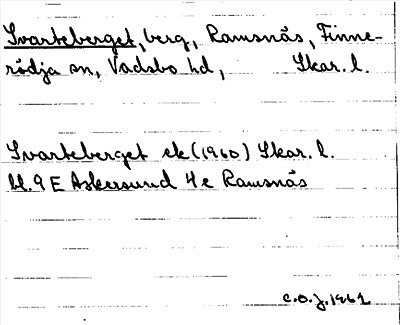 Svarteberget, berg, Ramsnäs, Finne-
rödja sn, Vadsbo hd, Skar. l.
Svarteberget ek (1960) Skar. l.
bl. 9 E Askersund 4 e Ramsnäs
C.O.J. 1962